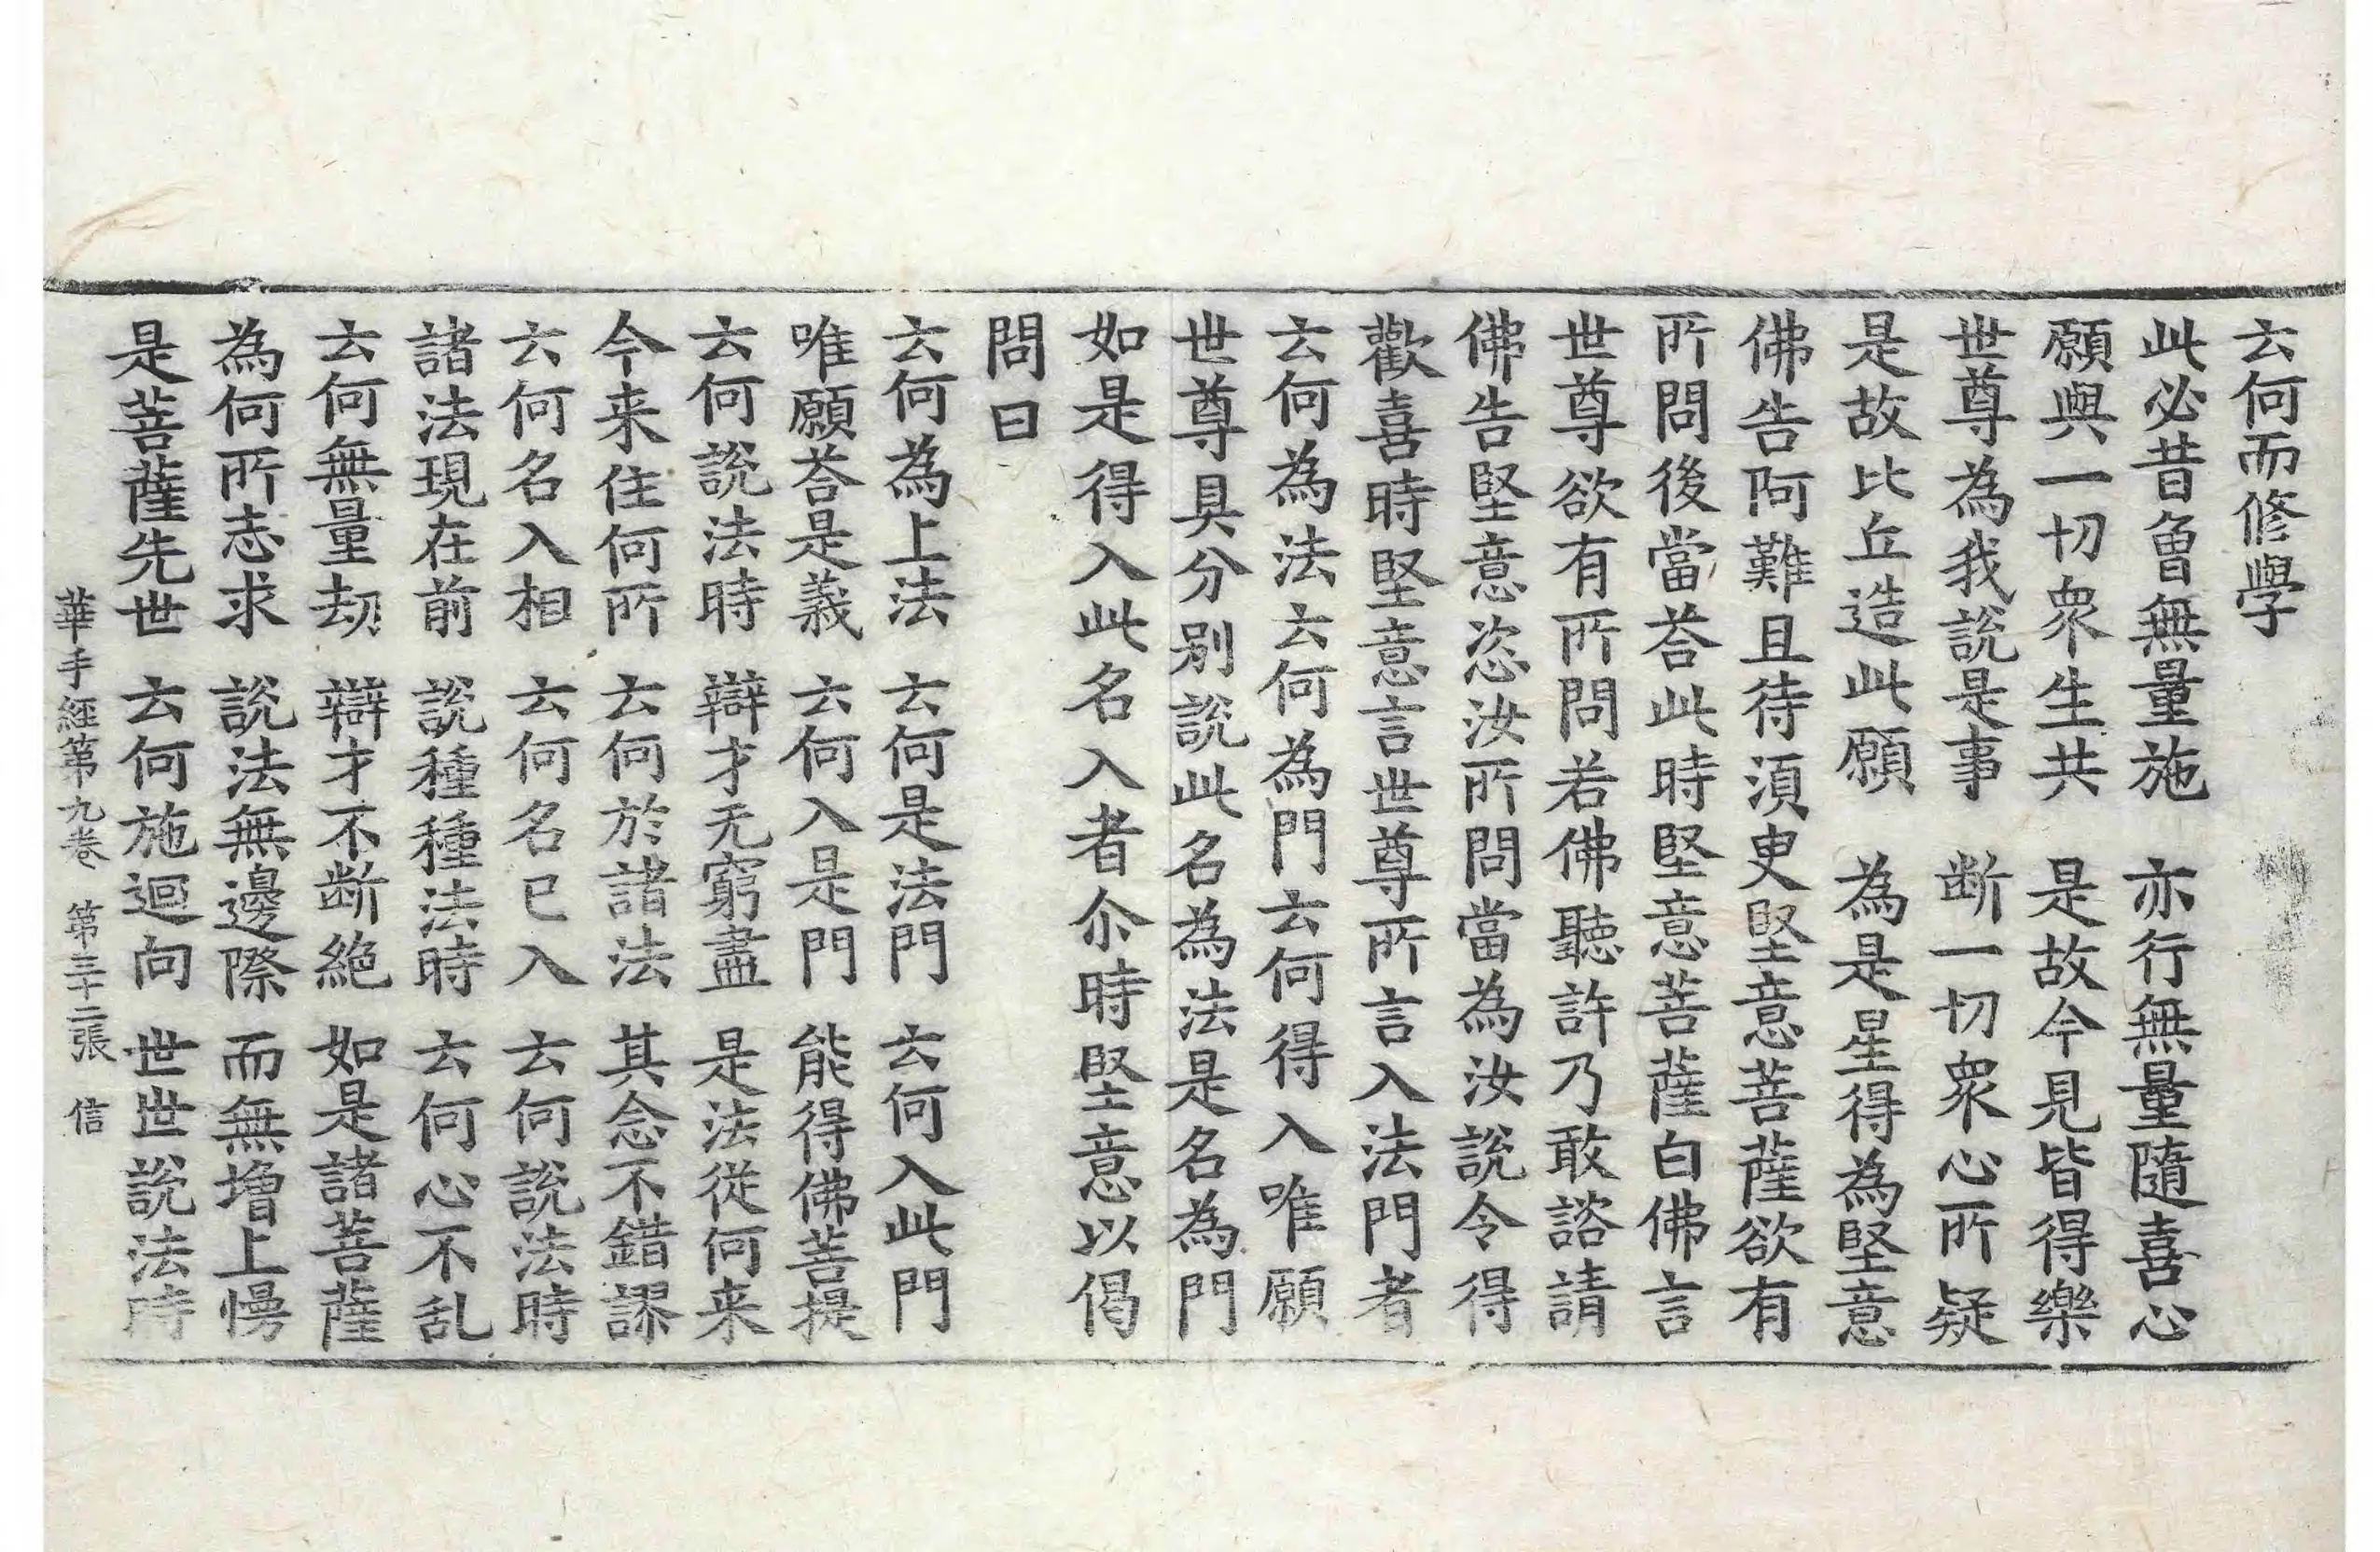 云何而修學
此必昔曾無量施　亦行無量隨喜心
願與一切衆生共　是故今見皆得樂
世尊為我說是事　断一切衆心所疑
是故比丘造此願　為是星得為堅意
佛告阿難且待湏臾堅意菩薩欲有
所問後當荅此時堅意菩薩白佛言
世尊欲有所問若佛聽許乃敢諮請
佛告堅意恣汝所問當為汝說令得
歡喜時堅意言世尊所言入法門者
云何為法云何為門云何得入唯願
世尊具分別說此名為法是名為門
如是得入此名入者尒時堅意以偈
問曰
云何為上法　云何是法門　云何入此門
唯願荅是義　云何入是門　能得佛菩提
云何說法時　辯才无窮盡　是法從何来
今来住何所　云何於諸法　其念不錯謬
云何名入相　云何名已入　云何說法時
諸法現在前　說種種法時　云何心不乱
云何無量劫　辯才不断絕　如是諸菩薩
為何所志求　說法無邊際　而無增上慢
是菩薩先世　云何施迴向　世世說法時
華手經第九卷　第三十二張　信